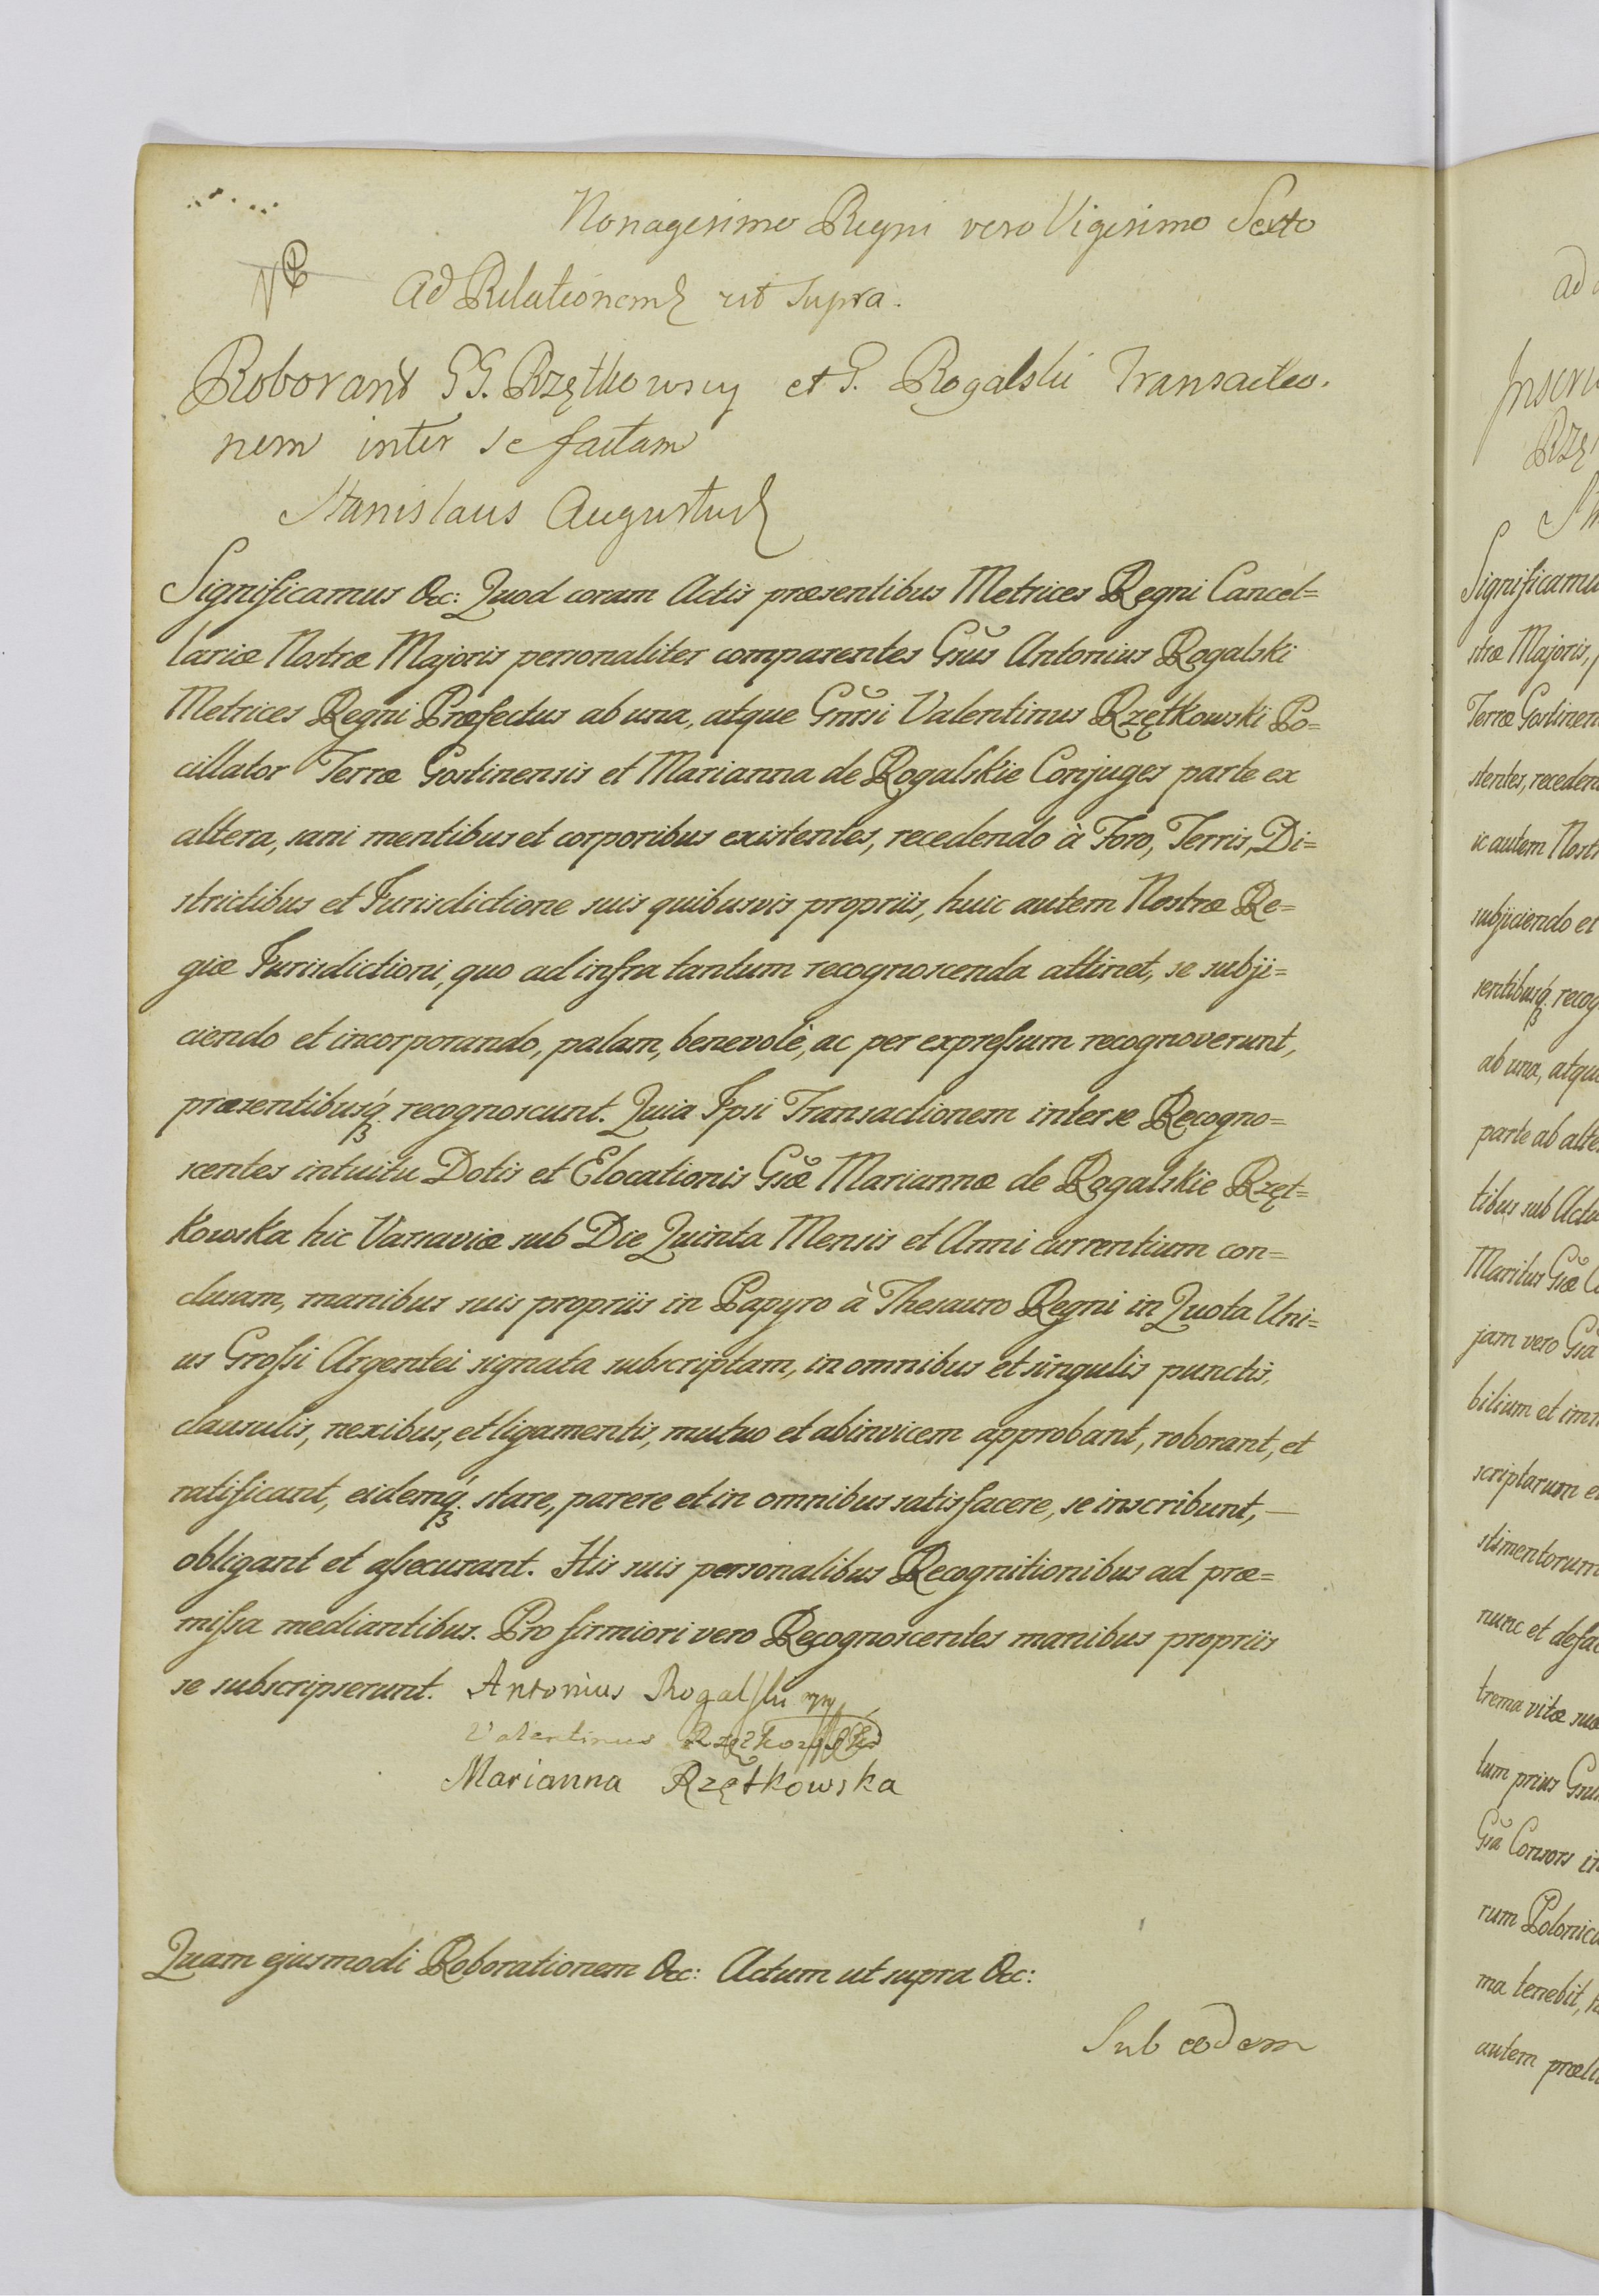 Nonagesimo Regni vero Vigesimo Sexto
Ad Relationem ut supra.
Roborant GG. Rzętkowscy et G. Rogalski Transactio-
nem inter se factam
Stanislaus Augustus
Significamus &c: Quod coram Actis præsentibus Metrices Regni Cancel=
lariæ Nostræ Majoris personaliter comparentes Gsus Antonius Rogalski
Metrices Regni Præfectus ab una, atque Gnrsi Valentinus Rzętkowski Po=
cillator Terræ Gostinensis et Marianna de Rogalskie Conjuges parte ex
altera, sani mentibus et corporibus existentes, recedendo à Foro, Terris, Di=
strictibus et Jurisdictione suis quibusvis propriis, huic autem Nostræ Re=
giæ Jurisdictioni, quo ad infra tantum recognoscenda attinet, se subji=
ciendo et incorporando, palam, benevolè, ac per expreſsum recognoverunt,
præsentibusq́ꝫ recognoscunt. Quia Ipsi Transactionem inter se Recogno=
scentes intuitu Dotis et Elocationis Gsæ Mariannæ de Rogalskie Rzęt=
kowska hic Varsaviæ sub Die Quinta Mensis et Anni currentium con=
clusam, manibus suis propriis in Papyro à Thesauro Regni in Quota Uni=
us Groſsi Argentei signata subscriptam, in omnibus et singulis punctis,
clausulis, nexibus, et ligamentis, mutuo et abinvicem approbant, roborant, et
ratificant, eidemq́ꝫ stare, parere et in omnibus satisfacere, se inscribunt, —
obligant et aſsecurant. His suis personalibus Recognitionibus ad præ=
miſsa mediantibus. Pro firmiori vero Recognoscentes manibus propriis
se subscripserunt. Antonius Rogalſki mp
Valentinus Rzętkowſki
Marianna Rzętkowska
Quam ejusmodi Roborationem &c: Actum ut supra &c:
Sub eodem
ad
Rzę
Significamu
stræ Majoris,
Terræ Gostinen
stentes, receden
ic autem Nostr
subjiciendo et
sentibusq́ꝫ recog
ab una, atque
parte ab alte
tibus sub Acto
Maritus Gsæ
jam vero Gsa
bilium et imm
scriptarum e
stimentorum
nunc et defac
trema vitæ suæ
tum prius
Gsa Consors in
rum Polonica
ma tenebit,
autem præ